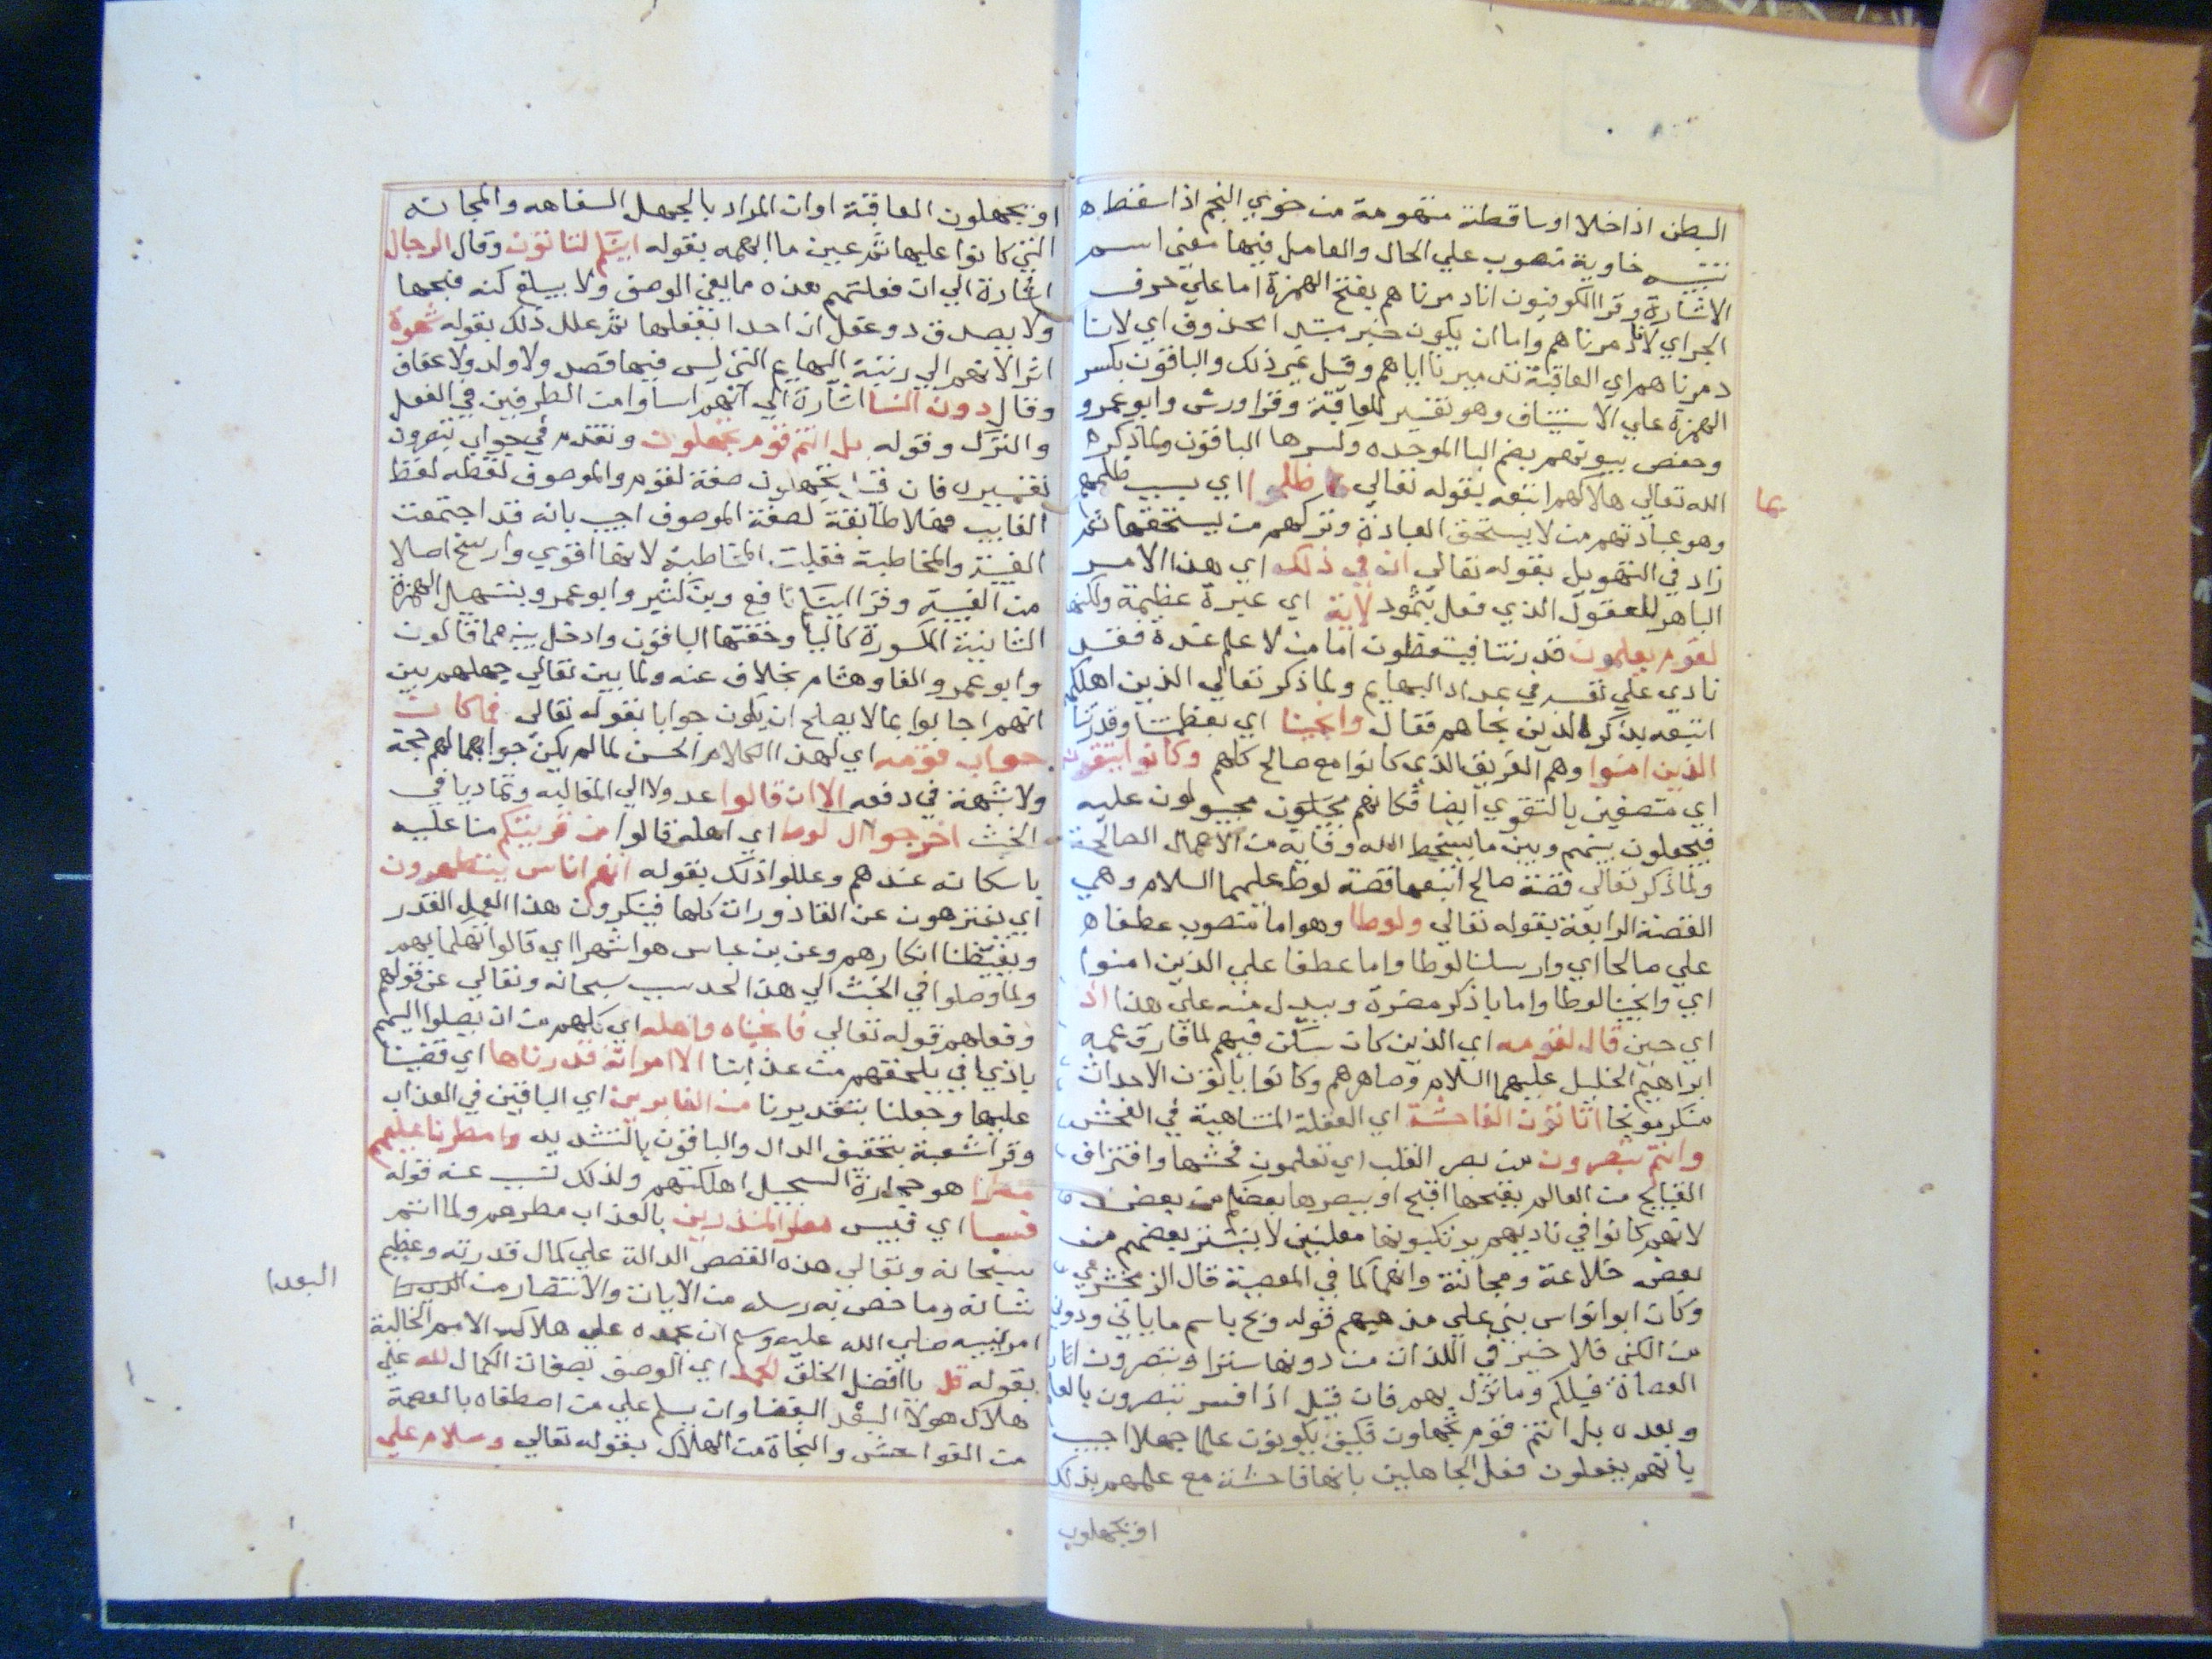 البطن اذا خلا او ساقطة منهومة من خوي النجم اذا سقط ه
تنبيه خاوية منصوب علي الحال والعامل فيها معني اسم
الاشارة وقرا الكوفيون انا دمرناهم بفتح الهمزة اما علي حرف
الجر اي لانا دمرناهم واما ان يكون خبر مبتدا محذوف اي لانا
دمرناهم اي العاقبة تدميرنا اياهم وقيل غير ذلك والباقون بكسر
الهمزة علي الاستيناف وهو تفسير للعاقبة وقرا ورش وابو عمرو
وحفص بيوتهم بضم البا الموحده وكسرها الباقون ولما ذكر ه
الله تعالي هلاكهم اتبعه بقوله تعالي ظلموا اي بسبب ظلمهم
بما
وهو عبادتهم من لا يستحق العبادة وتركهم من يستحقها ثم
زاد في التهويل بقوله تعالي ان في ذلك اي هذا الامر
الباهر للعقول الذي فعل بثمود لاية اي عبرة عظيمة ولكنها
لقوم يعلمون قدرتنا فيتعظون اما من لا علم عنده فقد
نادي علي نفسه في عداد البهايم ولما ذكر تعالي الذين اهلكهم
اتبعه بذكر الذين نجاهم فقال وانجينا اي بعظمتنا وقدرتنا
الذين امنوا وهم الفريق الذي كانوا مع صالح كلهم وكانوا يتقون
اي متصفين بالتقوي ايضا فكانهم مجبولون عليه
فيجعلون بينهم وبين ما يسخط الله وقاية من الاعمال الصالحة
ولما ذكر تعالي قصة صالح اتبعها قصة لوط عليهما السلام وهي
القصة الرابعة بقوله تعالي ولوطا وهو اما منصوب عطفا ه
علي صالحا اي وارسلنا لوطا واما عطفا علي الذين امنوا
اي وانجينا لوطا واما باذكر مضمرة ويبدل منه علي هذا اذ
اي حين قال لقومه اي الذين كان سكن فيهم لما فارق عمه
ابراهيم الخليل عليهما السلام وصاهرهم وكانوا ياتون الاحداث
منكر موبخا اتاتون الفاحشة اي الفعلة المتناهية في الفحش
وانتم تبصرون من بصر القلب اي تعلمون فحشها واقتراف
القبايح من العالم بقبحها اقبح او يبصرها بعضكم من بعض
لانهم كانوا في ناديهم يرتكبونها معلنين لا يستتر بعضهم من
بعض خلاعة ومجانة وانهماكا في المعصية قال الزمخشري
وكان ابو انواس بني علي مذهبهم قوله وبح باسم ما ياتي ودعني
من الكني فلا خير في اللذات من دونها سترا وتبصرون اثار
العصاة قبلكم وما نزل بهم فان قيل اذا فسر تبصرون بالعلم
وبعده بل انتم قوم تجهلون فكيف يكونون علما جهلا اجيب
بانهم يفعلون فعل الجاهلين بانها فاحشة مع علمهم بذلك
او يجهلون
او يجهلون العاقبة او ان المراد بالجهل السفاهه والمجانه
التي كانوا عليها ثم عين ما ابهمه بقوله اينكم لتاتون وقال الرجال
اشارة الي ان فعلتهم هذه مما يعي الوصف ولا يبلغ كنه قبحها
ولا يصدق ذو عقل ان احدا يفعلها ثم علل ذلك بقوله شهوة
انزالا لهم الي رتبة البهايم التي ليس فيها قصد ولا ولد ولا عفاف
وقال دون النسا اشارة الي انهم اساوا من الطرفين في الفعل
والترك وقوله بل انتم قوم تجهلون وتقدم في جواب تبصرون
تفسيره فان قيل تجهلون صفة لقوم والموصوف لفظه لفظ
الغايب فهلا طابقة لصفة الموصوف اجيب بانه قد اجتمعت
الغيبة والمخاطبة فغلبت المخاطبة لانها اقوي وارسخ اصلا
من الغيبة وقرا اينكم نافع وبن كثير وابو عمرو بتسهيل الهمزة
الثانية المكسورة كاليا وحققها الباقون وادخل بينهما قالون
وابو عمرو الفا وهشام بخلاف عنه ولما بين تعالي جهلهم بين
انهم اجابوا بما لا يصلح ان يكون جوابا بقوله تعالي فما كان
جواب قومه اي لهذا الكلام الحسن لما لم يكن جوابهما لهم حجة
ولا شبهة في دفعه الا ان قالوا عدولا الي المغالبه وتماديا في
الخبث اخرجوا ال لوط اي اهله قالوا من قريتكم منا عليه
باسكانه عندهم وعللوا ذلك بقوله انهم اناس يتطهرون
اي يتنزهون عن القاذورات كلها فينكرون هذا العمل القذر
ويغيظنا انكارهم وعن بن عباس هو استهزا اي قالوا تهكما بهم
ولما وصلوا في الخبث الي هذا الحد سبب سبحانه وتعالي عن قولهم
وفعلهم قوله تعالي فانجيناه واهله اي كلهم من ان يصلوا اليهم
باذي او يلحقهم من عذابنا الا امراته قدرناها اي قضينا
عليها وجعلنا بتقديرنا من الغابرين اي الباقين في العذاب
وقرا شعبة بتخفيف الدال والباقون بالتشديد وامطرنا عليهم
مطرا هو حجارة السجيل اهلكتهم ولذلك تسبب عنه قوله
فسا اي فبيس مطر المنذرين بالعذاب مطرهم ولما اتم
سبحانه وتعالي هذه القصص الدالة علي كمال قدرته وعظيم
شانه وما خص به رسله من الايات والانتصار من
البعدا
امر نبيه صلي الله عليه وسلم ان يحمده علي هلاك الامم الخالية
بقوله قل يا افضل الخلق الحمد اي الوصف بصفات الكمال لله علي
هلاك هولا البعدا البغضا وان يسلم علي من اصطفاه بالعصمة
من الفواحش والنجاة من الهلاك بقوله تعالي وسلام علي